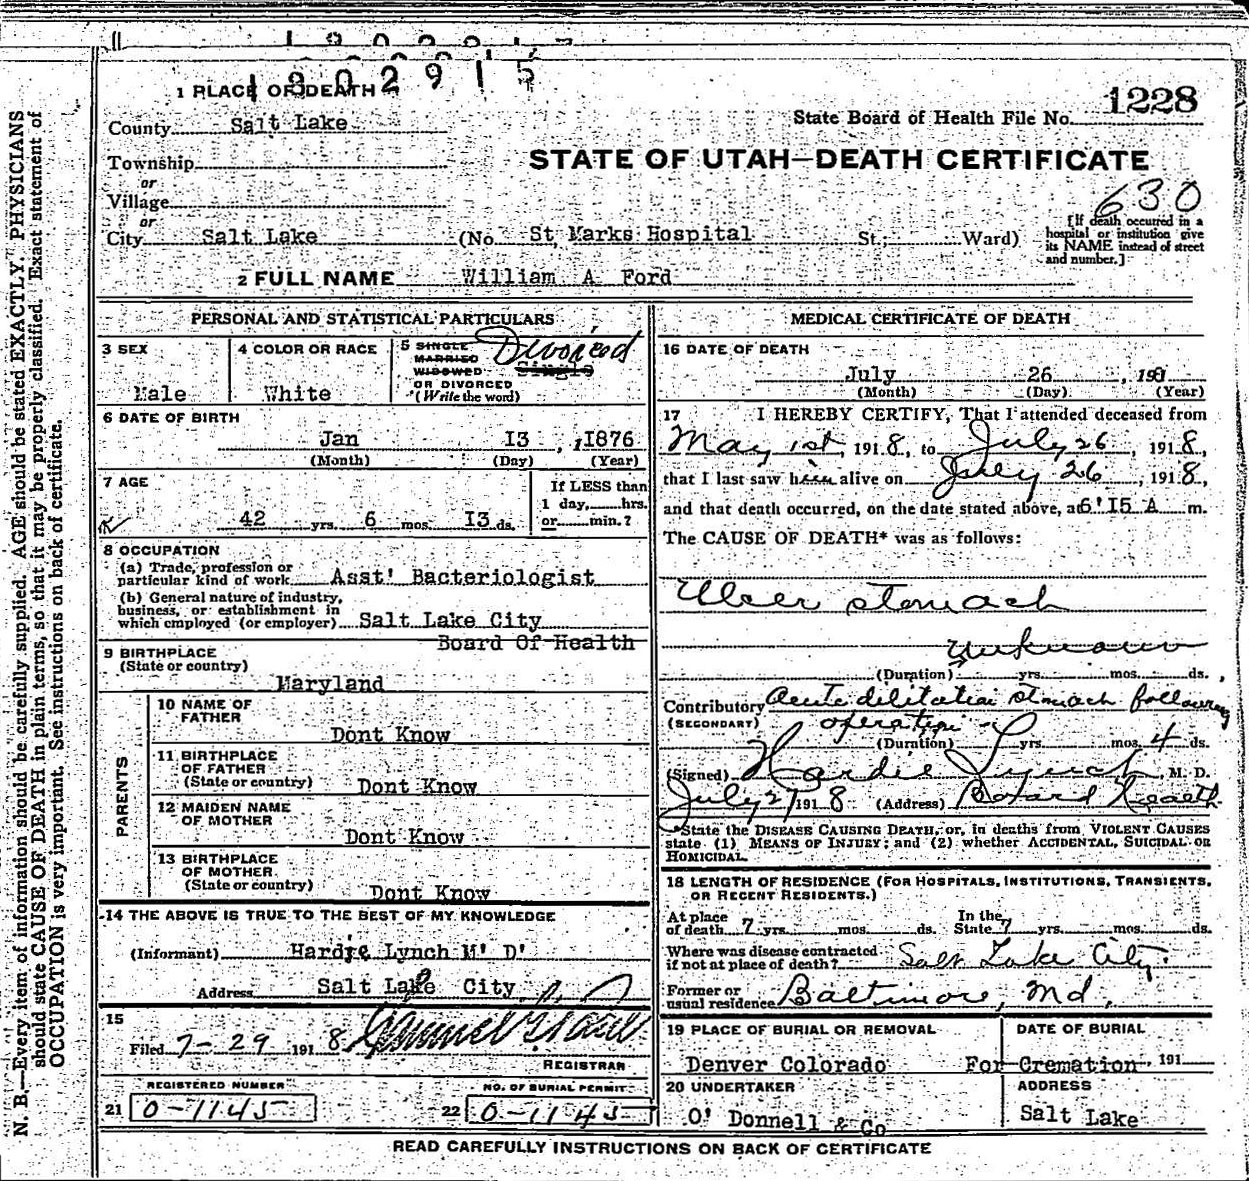 1802915
1 PLACE OF DEATH
1228
State Board of Health File No.
County Salt Lake
STATE OF UTAH—DEATH CERTIFICATE
Township
or
Village
630
or
City Salt Lake (No. St, Marks Hospital St.; Ward)
[If death occurred in a hospital or institution give its NAME instead of street and number.]
2 FULL NAME William A Ford
PERSONAL AND STATISTICAL PARTICULARS
3 SEX
Male
4 COLOR OR RACE
White
5 SINGLE
MARRIED
WIDOWED
OR DIVORCED
(Write the word)
Divorced
Single
6 DATE OF BIRTH
Jan 13, 1876
(Month) (Day) (Year)
7 AGE
42 yrs. 6 mos. 13 ds.
If LESS than
1 day, hrs.
or min.?
8 OCCUPATION
(a) Trade, profession or
particular kind of work Asst' Bacteriologist
(b) General nature of industry,
business, or establishment in
which employed (or employer) Salt Lake City
Board Of Health
9 BIRTHPLACE
(State or country)
Maryland
PARENTS
10 NAME OF
FATHER
Dont Know
11 BIRTHPLACE
OF FATHER
(State or country) Dont Know
12 MAIDEN NAME
OF MOTHER
Dont Know
13 BIRTHPLACE
OF MOTHER
(State or country)
Dont Know
14 THE ABOVE IS TRUE TO THE BEST OF MY KNOWLEDGE
(Informant) Hardie Lynch M' D'
Address Salt Lake City
15
Filed 7-29 1918
REGISTRAR
REGISTERED NUMBER
21 0-1145
NO. OF BURIAL PERMIT
22 0-1145
MEDICAL CERTIFICATE OF DEATH
16 DATE OF DEATH
July 26, 191
(Month) (Day) (Year)
17 I HEREBY CERTIFY, That I attended deceased from
May 1st, 1918, to July 26, 1918,
that I last saw him alive on July 26, 1918,
and that death occurred, on the date stated above, at 6'15 A m.
The CAUSE OF DEATH* was as follows:
Ulcer stomach
unknown
(Duration) yrs. mos. ds.
Contributory Acute dilitation stomach following
(SECONDARY) operation
(Duration) yrs. mos. 4 ds.
(Signed) Hardie Lynch, M. D.
July 27 1918 (Address) Board Health
*State the DISEASE CAUSING DEATH, or, in deaths from VIOLENT CAUSES
state (1) MEANS OF INJURY; and (2) whether ACCIDENTAL, SUICIDAL OR
HOMICIDAL.
18 LENGTH OF RESIDENCE (FOR HOSPITALS, INSTITUTIONS, TRANSIENTS,
OR RECENT RESIDENTS.)
At place
of death 7 yrs. mos. ds.
In the
State 7 yrs. mos. ds.
Where was disease contracted
if not at place of death? Salt Lake City.
Former or
usual residence Baltimore, Md,
19 PLACE OF BURIAL OR REMOVAL
Denver Colorado
DATE OF BURIAL
For Cremation 191
20 UNDERTAKER
O' Donnell & Co
ADDRESS
Salt Lake
READ CAREFULLY INSTRUCTIONS ON BACK OF CERTIFICATE
N. B.—Every item of information should be carefully supplied. AGE should be stated EXACTLY. PHYSICIANS
should state CAUSE OF DEATH in plain terms, so that it may be properly classified. Exact statement of
OCCUPATION is very important. See instructions on back of certificate.